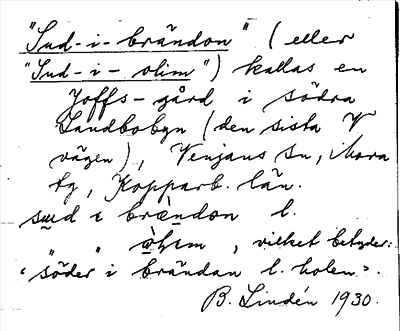 "Sud-i-brändon" (eller
"Sud-i-olim") kallas en
Joffs-gård i södra
Landbobyn (den sista V
vägen), Venjans sn, Mora
tg, Kopparb. län.
sud i brändon l.
" " olim, vilket betyder:
'söder i brändan l. holen'.
B. Lindén 1930.